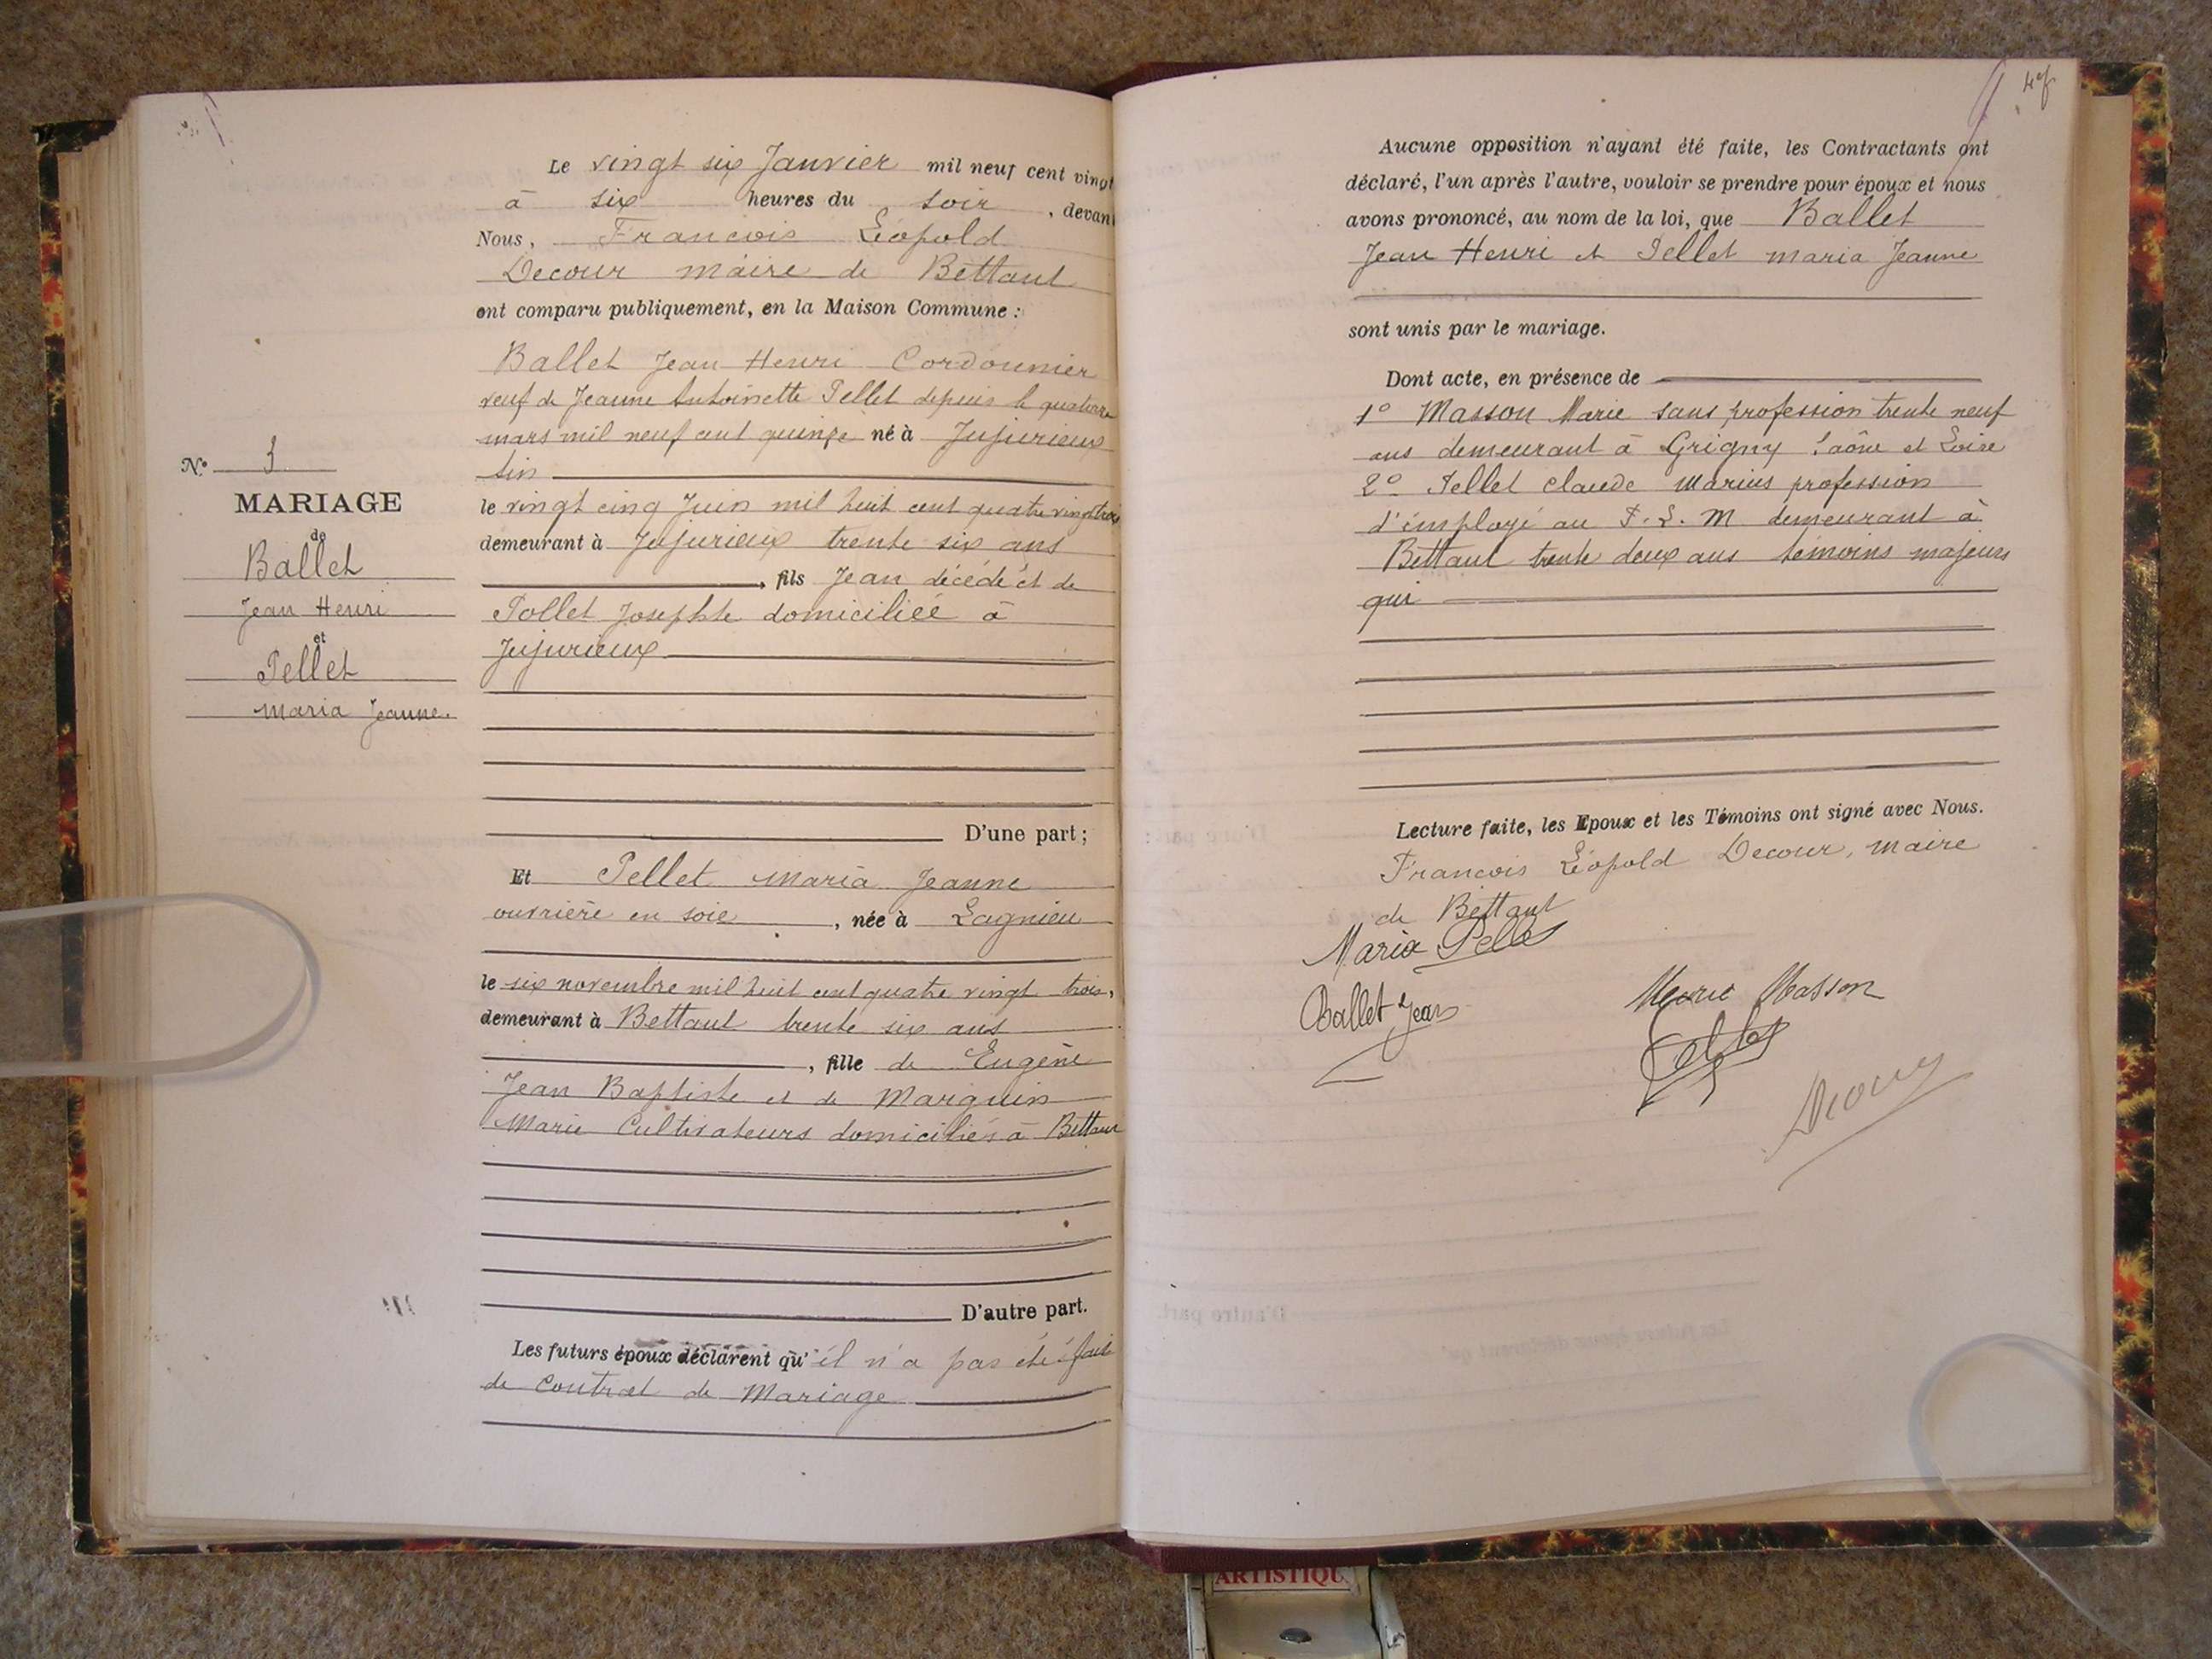 Le vingt six Janvier mil neuf cent vingt
à six heures du soir, devant
Nous, Francois Léopold
Decour maire de Bettant
ont comparu publiquement, en la Maison Commune :
Ballet Jean Henri Cordonnier
veuf de Jeanne Antoinette Pellet depuis le quatorze
mars mil neuf cent quinze né à Jujurieux
Ain
le vingt cinq Juin mil huit cent quatre vingt trois
demeurant à Jujurieux trente six ans
, fils Jean décédé et de
Pollet Josephte domiciliée à
Jujurieux
D'une part ;
Nº 3
MARIAGE
de
Ballet
Jean Henri
et
Pellet
maria Jeanne
Et Pellet maria Jeanne
ouvrière en soie, née à Lagnieu
le six novembre mil huit cent quatre vingt trois,
demeurant à Bettant trente six ans
, fille de Eugène
Jean Baptiste et de Marguin
Marie Cultivateurs domiciliés à Bettant
D'autre part.
Les futurs époux déclarent qu'il n'a pas été fait
de Contrat de Mariage
Aucune opposition n'ayant été faite, les Contractants ont
déclaré, l'un après l'autre, vouloir se prendre pour époux et nous
avons prononcé, au nom de la loi, que Ballet
Jean Henri et Pellet maria Jeanne
sont unis par le mariage.
Dont acte, en présence de
1º Masson Marie sans profession trente neuf
ans demeurant à Grigny Saône et Loire
2º Pellet claude Marius profession
d'employé au P. L. M demeurant à
Bettant trente deux ans témoins majeurs
qui
Lecture faite, les Epoux et les Témoins ont signé avec Nous.
Francois Léopold Decour, maire
de Bettant
Maria Pellet
Ballet Jean
Marie Masson
Pellet
Decour
ARTISTIQU